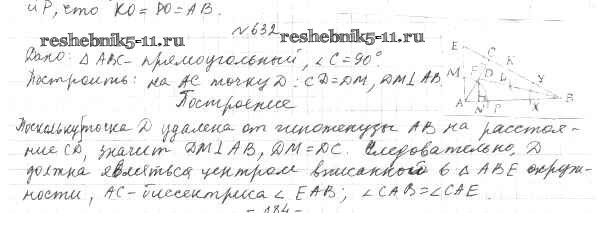 и P, что KO = PO = AB.
№632
reshebnik5-11.ru
Дано: △ ABC - прямоугольный, ∠C = 90°.
reshebnik5-11.ru
Построить: на AC точку D : CD = DM, DM ⊥ AB.
Построение
Поскольку точка D удалена от гипотенузы AB на расстоя-
ние CD, значит DM ⊥ AB, DM = DC. Следовательно, D
должна являться центром вписанной в △ ABE окруж-
ности, AC - биссектриса ∠ EAB; ∠CAB = ∠CAE.
- 184 -
E
C
K
M
F
D
L
Y
A
H
N
P
X
B